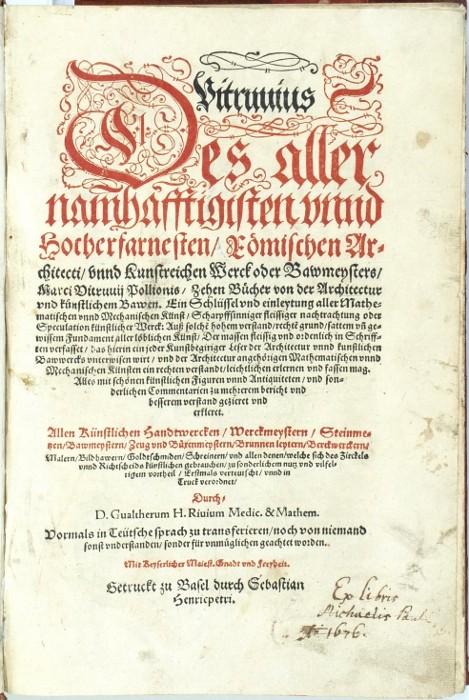 Vitruuius
Des aller
namhafftigisten vnnd
Hocherfarnesten/ Römischen Ar-
chitecti/ vnnd Kunstreichen Werck oder Bawmeysters/
Marci Vitruuij Pollionis/ Zehen Bücher von der Architectur
vnd künstlichem Bawen. Ein Schlüssel vnd einleytung aller Mathe-
matischen vnnd Mechanischen Künst/ Scharpffsinniger fleissiger nachtrachtung oder
Speculation künstlicher Werck: Auß solche hohem verstand/ rechte grund/ sattem vn̄ ge-
wissem Fundament aller löblichen Künst/ Der massen fleissig vnd ordenlich in Schriff-
ten verfasset/ das hierin ein jeder Kunstbegiriger Leser der Architectur vnnd künstlichen
Bawwercks vnterwisen wirt/ vnd der Architectur angehörigen Mathematischen vnnd
Mechanischen Künsten ein rechten verstandt/ leichtlichen erlernen vnd fassen mag.
Alles mit schönen künstlichen Figuren vnnd Antiquiteten/ vnd son-
derlichen Commentarien zu mehrerem bericht vnd
besserem verstand gezieret vnd
erkleret.
Allen Künstlichen Handtwercken/ Werckmeystern/ Steinme-
tzen/ Bawmeystern/ Zeug vnd Büxenmeystern/ Brunnen leytern/ Berckwerckern/
Malern/ Bildhawern/ Goldtschmiden/ Schreinern/ vnd allen denen/ welche sich des Zirckels
vnnd Richtscheids künstlichen gebrauchen/ zu sonderlichem nutz vnd vilfel-
tigem vortheil/ Erstmals verteutscht/ vnnd in
Truck verordnet/
Durch/
D. Gualtherum H. Riuium Medic. & Mathem.
Vormals in Teütsche sprach zu transferieren/ noch von niemand
sonst vnderstanden/ sonder für vnmüglichen geachtet worden.
Mit Keyserlicher Maiest. Gnadt vnd Freyheit.
Getruckt zu Basel durch Sebastian
Henricpetri.
Ex libris
Michaelis
1676.